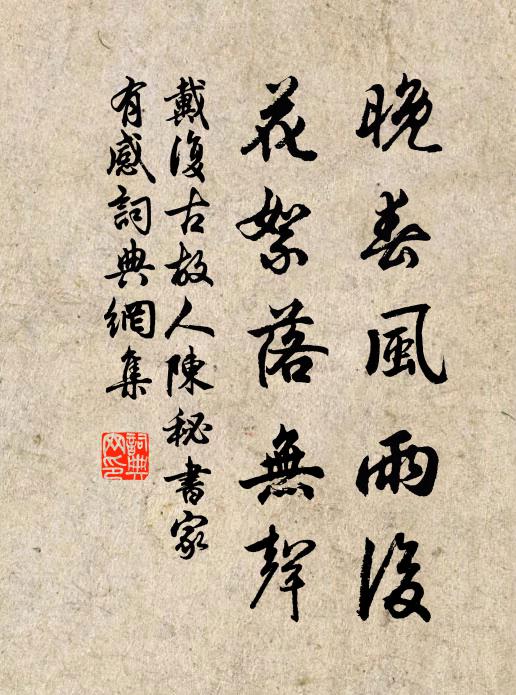 晚春風雨後
花絮落無聲
戴復古故人陳秘書家
有感詞典網集
詞典
网印